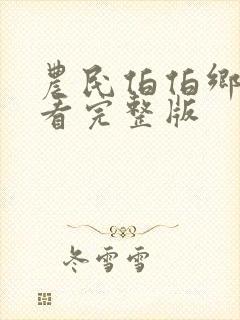 農民伯伯鄉
看完整版
冬雪雪